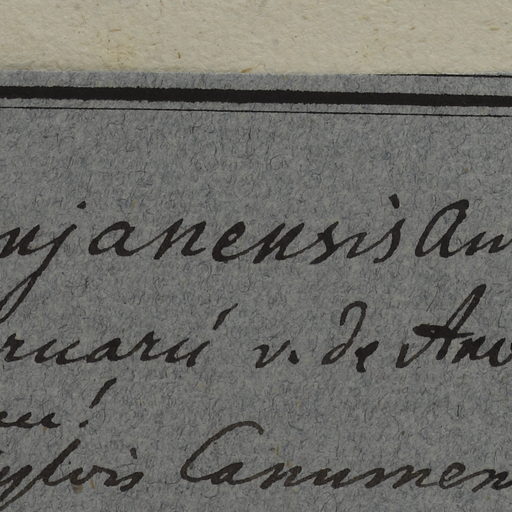 njanensis Au
ruarii v. de Arv
ylvis Canumen